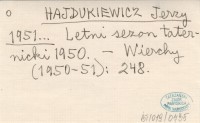 o HAJDUKIEWICZ Jerzy
1951... Letni sezon tater-
nicki 1950. — Wierchy
(1950-51): 248.